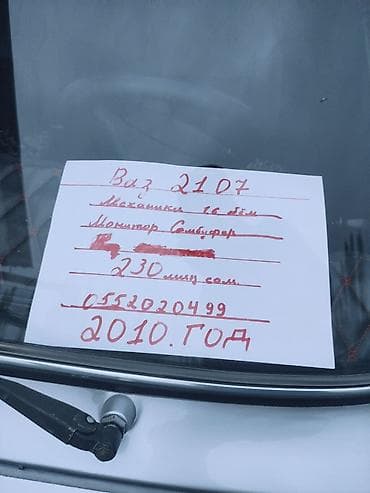 Ваз 2107
Механика 1.6 обём
Монитор Сомбуфер
230 миң сом.
0552020499
2010.ГОД